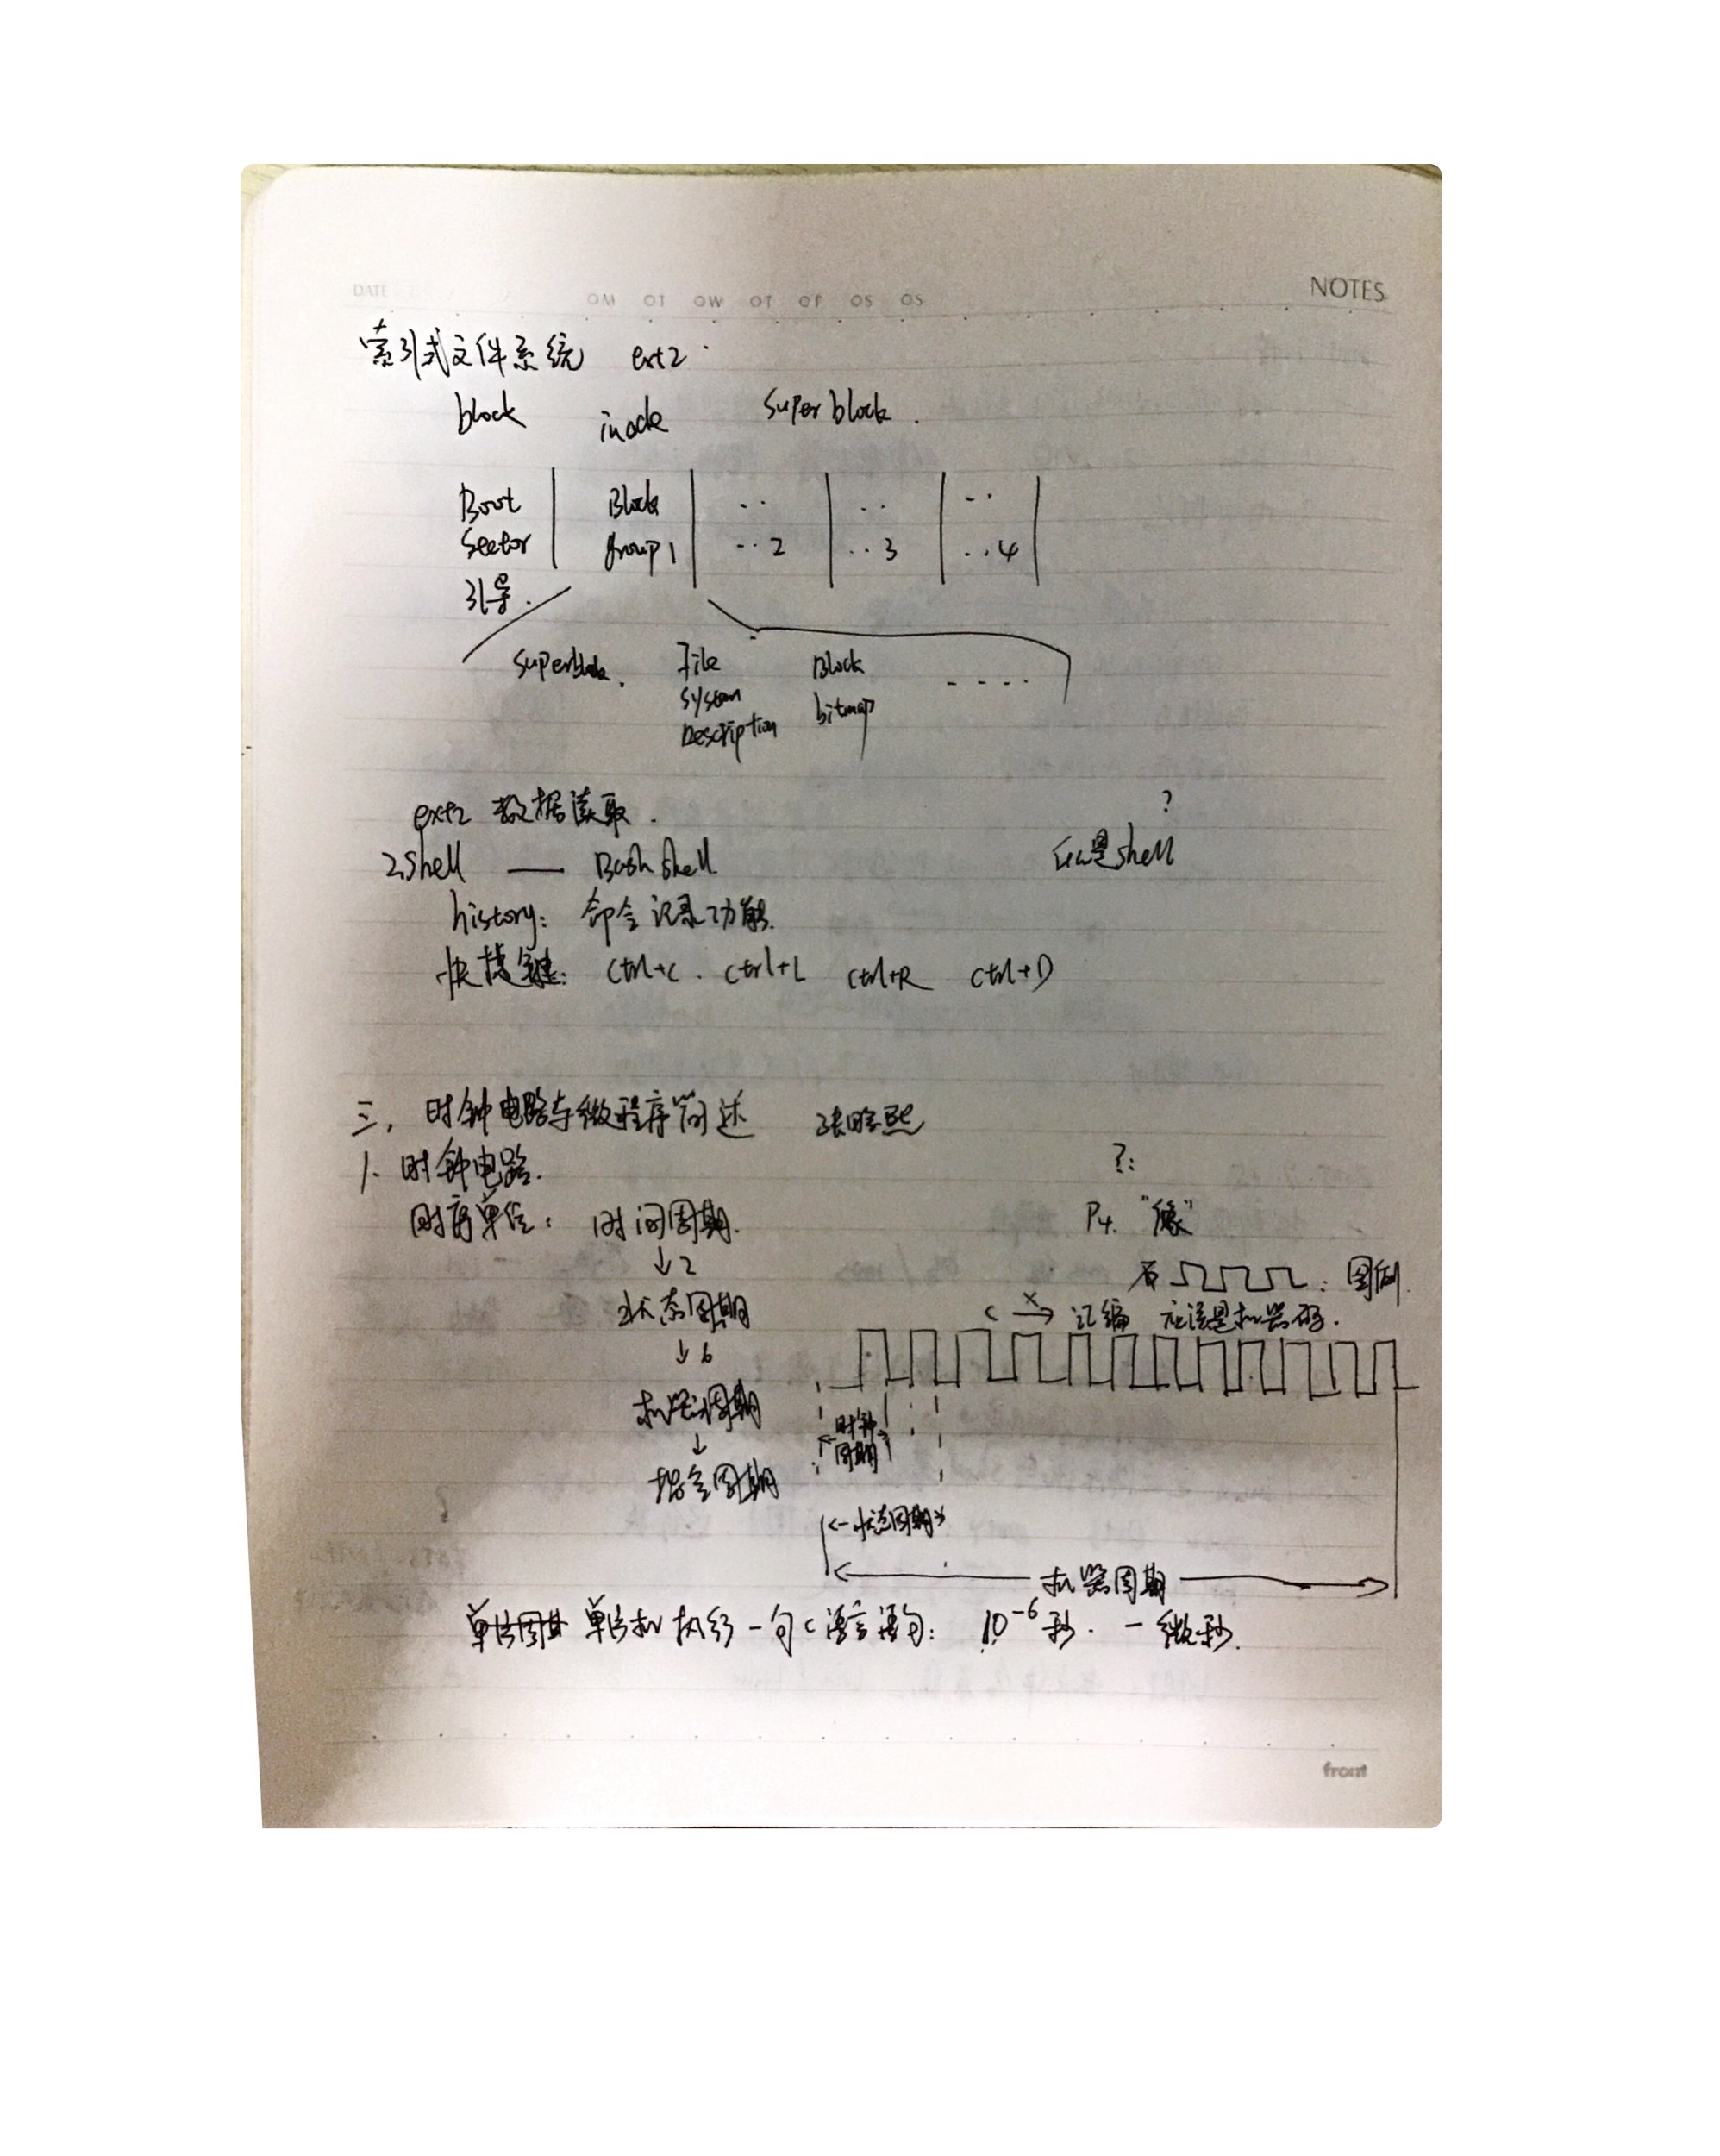 DATE
OM OT OW OT OF OS OS
NOTES
索引式文件系统 ext2
block inode superblock.
Boot Block .. .. ..
Sector group1 ..2 ..3 ..4
引导.
superblock. File Block ....
system bitmap
Description
ext2 数据读取.
?
2.shell — Bash shell 么是shell
history: 命令记录功能.
快捷键: ctrl+c. ctrl+L ctrl+R ctrl+D
三、时钟电路与微程序简述 张晗熙
1. 时钟电路.
?:
时序单位: 时间周期. P4. "像"
↓2
: 图例.
状态周期 C X→ 汇编 应该是机器码.
↓6
机器周期
时钟
周期
↓
指令周期
状态周期
机器周期
单片机执行一句C语言语句: 10⁻⁶秒. 一微秒.
front